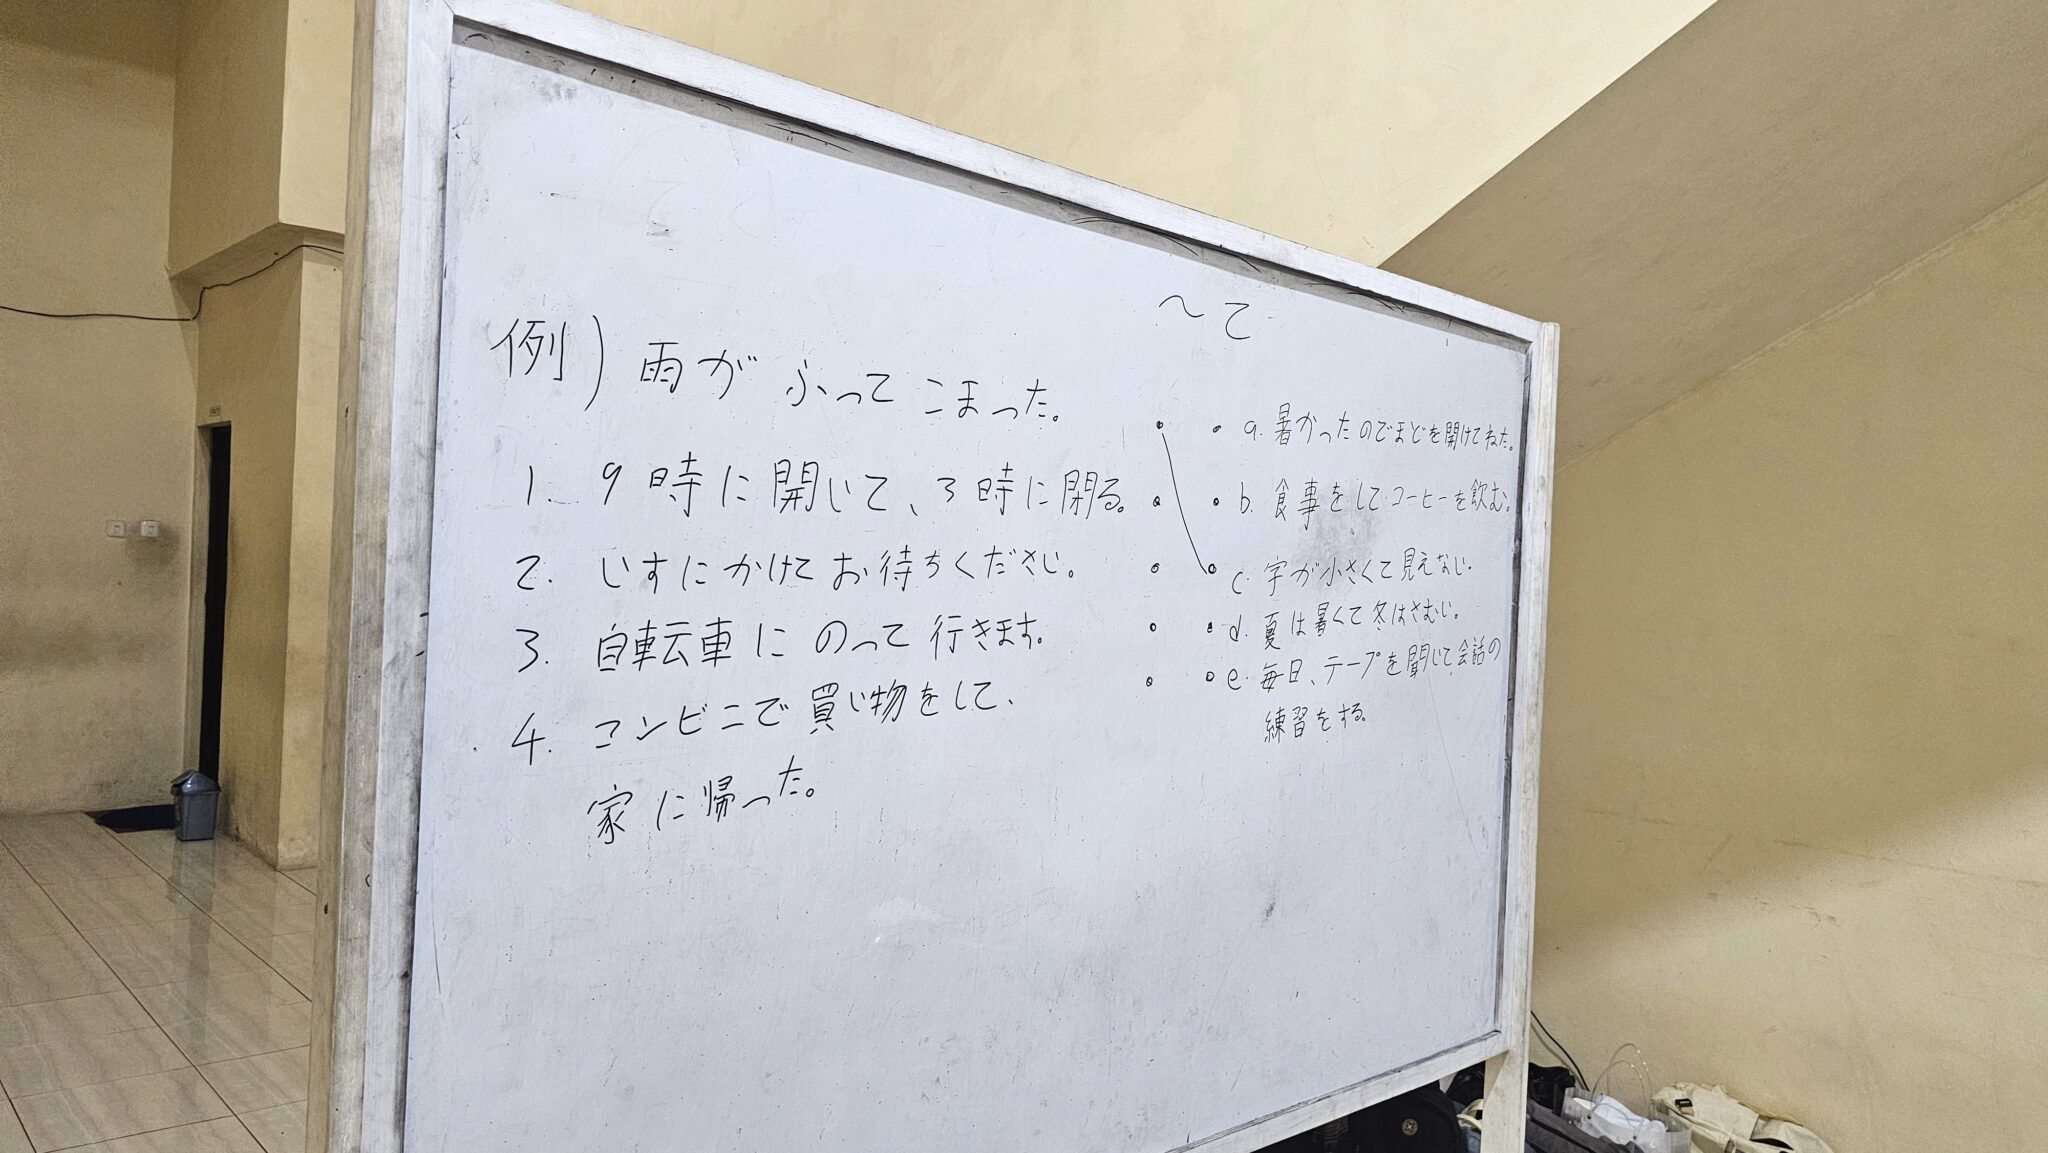 ～て
例) 雨が ふって こまった。
1. 9時に開いて、3時に閉る。
2. いすにかけてお待ちください。
3. 自転車にのって行きます。
4. コンビニで買い物をして、
家に帰った。
a. 暑かったのでまどを開けてねた。
b. 食事をしてコーヒーを飲む。
c. 字が小さくて見えない。
d. 夏は暑くて冬はさむい。
e. 毎日、テープを聞いて会話の
練習をする。